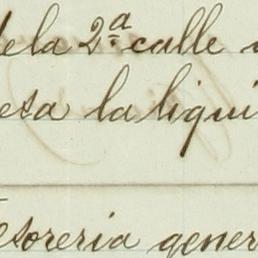 dela 2ª calle
esa la liqui
esoreria gener